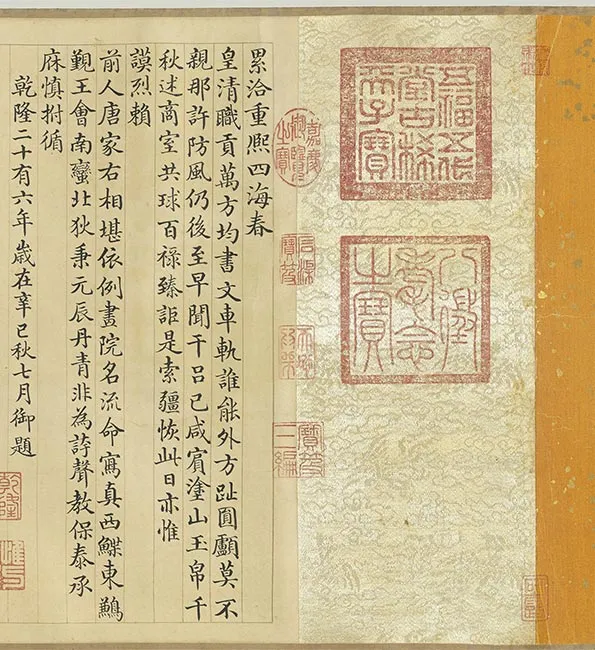 五福五代
堂古稀
天子寶
八徵
耄念
之寶
嘉慶
御覽
之寶
石渠
寶笈
寶笈
三編
累洽重熙四海春
皇清職貢萬方均書文車軌誰能外方趾圓顱莫不
親那許防風仍後至早聞干呂已咸賓塗山玉帛千
秋述商室共球百祿臻詎是索疆恢此日亦惟
謨烈賴
前人唐家右相堪依例畫院名流命寫真西鰈東鶼
覲王會南蠻北狄秉元辰丹青非為誇聲教保泰承
庥慎拊循
乾隆二十有六年歲在辛巳秋七月御題
乾隆